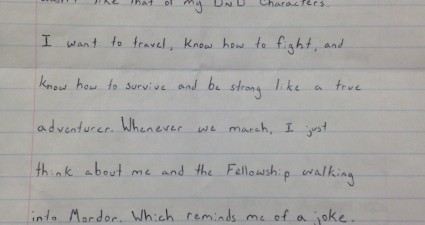 like that of my DnD Characters.
I want to travel, know how to fight, and
know how to survive and be strong like a true
adventurer. Whenever we march, I just
think about me and the Fellowship walking
into Mordor. Which reminds me of a joke.